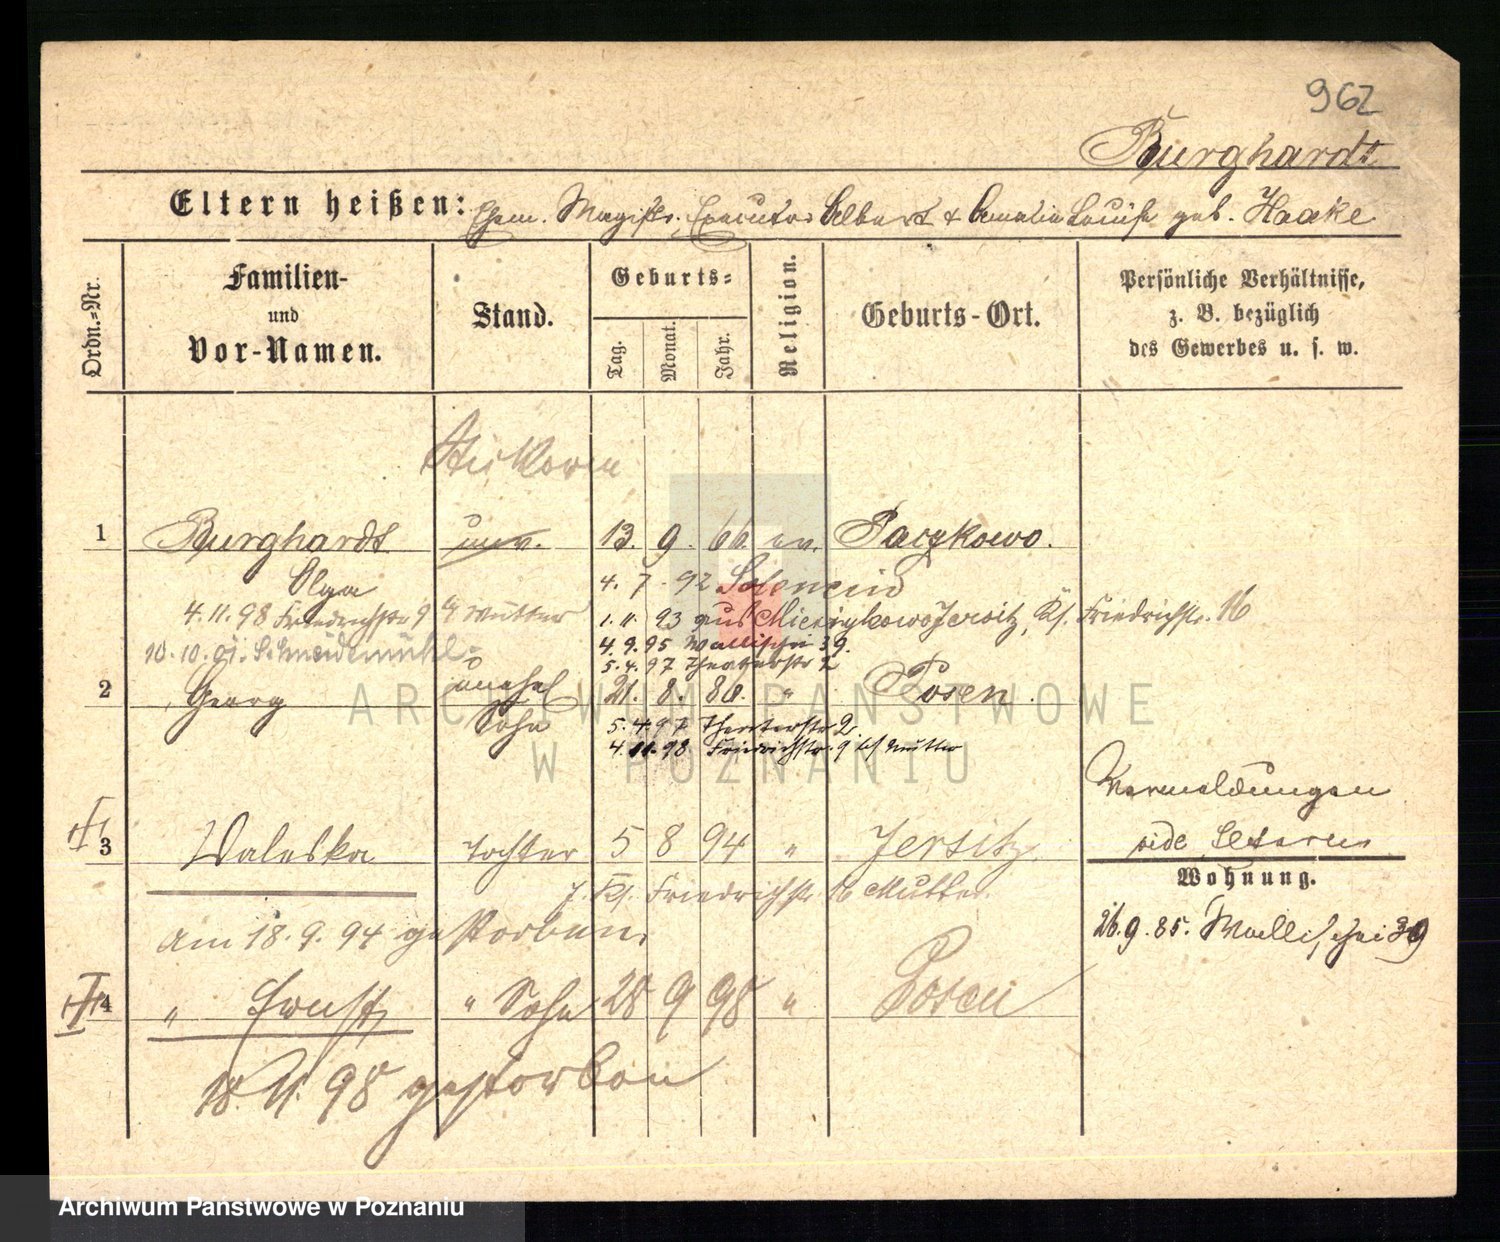 962
Burghardt
Eltern heißen: Ehem. Magistr. Executor Albert & Amalie Louise geb. Haake
Ordn.-Nr.
Familien-
und
Vor-Namen.
Stand.
Geburts-
Tag.
Monat.
Jahr.
Religion.
Geburts-Ort.
Persönliche Verhältnisse,
z. B. bezüglich
des Gewerbes u. s. w.
1 Burghardt unv. 13. 9. 66. ev. Paczkowo.
Olga 4. 7. 92
4. 11. 98 Friedrichstr. 9 Mutter 1. 11. 93 aus Jersitz, Kl. Friedrichstr. 16
4. 9. 95 Wallischei 39.
10. 10. 01. Schneidemühl
5. 4. 97 Theaterstr 2
2 Georg unehel 21. 8. 86. " Posen.
Sohn 5. 4. 97 Theaterstr 2.
4. 11. 98 Friedrichstr. 9 bei Mutter
Vermeldungen
vide
3 Waleska Tochter 5 8 94 " Jersitz.
Kl. Friedrichstr. 16 Mutter.
Wohnung.
26. 9. 85. Wallischei 39
am 18. 9. 94 gestorben.
4 " Ernst " Sohn 28 9 98 " Posen
18. 11. 98 gestorben
ARCHIWUM PAŃSTWOWE
W POZNANIU
Archiwum Państwowe w Poznaniu